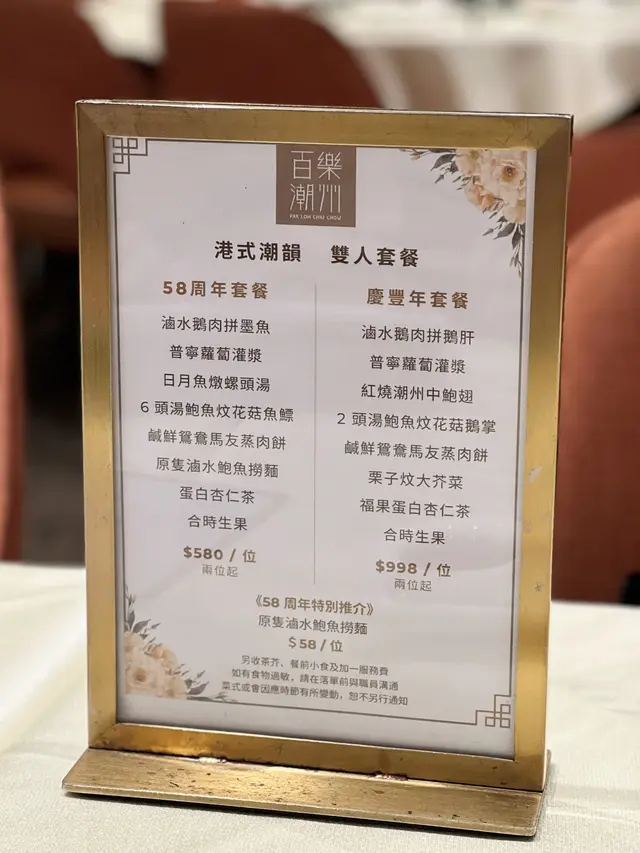 百樂
潮州
PAK LOH CHIU CHOW
港式潮韻 雙人套餐
58周年套餐
滷水鵝肉拼墨魚
普寧蘿蔔灌漿
日月魚燉螺頭湯
6 頭湯鮑魚炆花菇魚鰾
鹹鮮鴛鴦馬友蒸肉餅
原隻滷水鮑魚撈麵
蛋白杏仁茶
合時生果
$580 / 位
兩位起
慶豐年套餐
滷水鵝肉拼鵝肝
普寧蘿蔔灌漿
紅燒潮州中鮑翅
2 頭湯鮑魚炆花菇鵝掌
鹹鮮鴛鴦馬友蒸肉餅
栗子炆大芥菜
福果蛋白杏仁茶
合時生果
$998 / 位
兩位起
《58 周年特別推介》
原隻滷水鮑魚撈麵
$58/位
另收茶芥、餐前小食及加一服務費
如有食物過敏，請在落單前與職員溝通
菜式或會因應時節有所變動，恕不另行通知